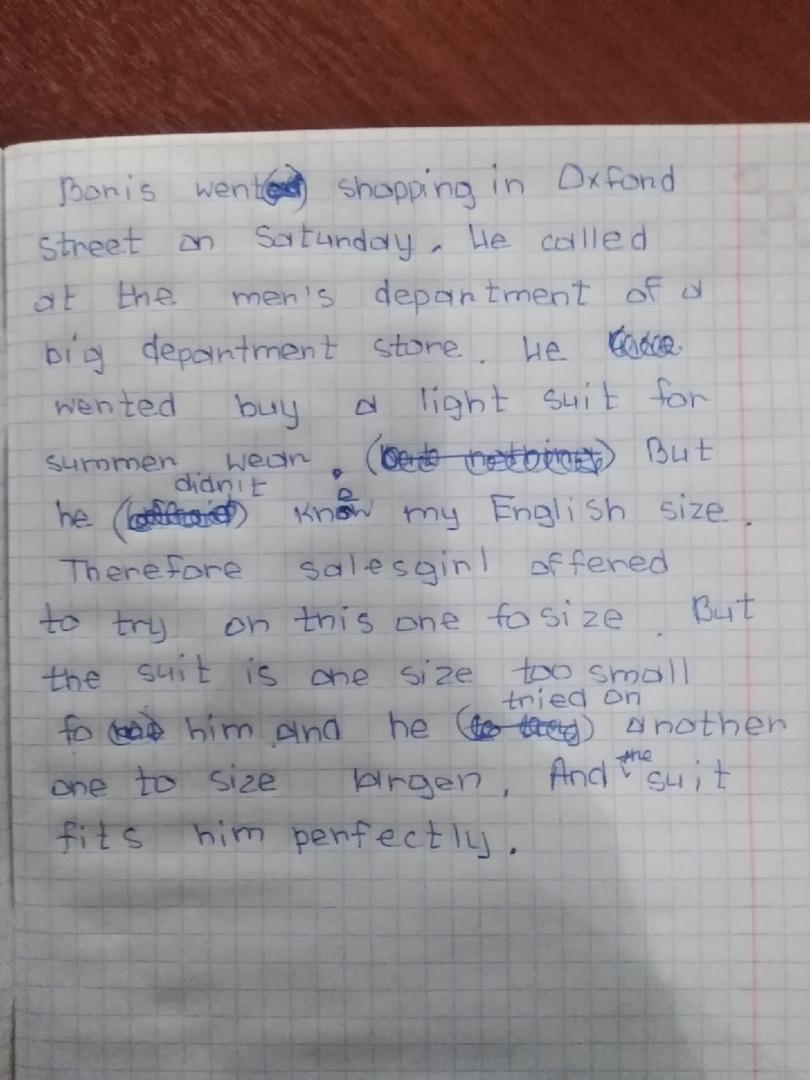 Boris went shopping in Oxford
street on Saturday. He called
at the men's department of a
big department store. He
wented buy a light suit for
summer wear. But
he didn't know my English size.
Therefore salesgirl offered
to try on this one fo size. But
the suit is one size too small
fo him and he tried on another
one to size larger. And the suit
fits him perfectly.